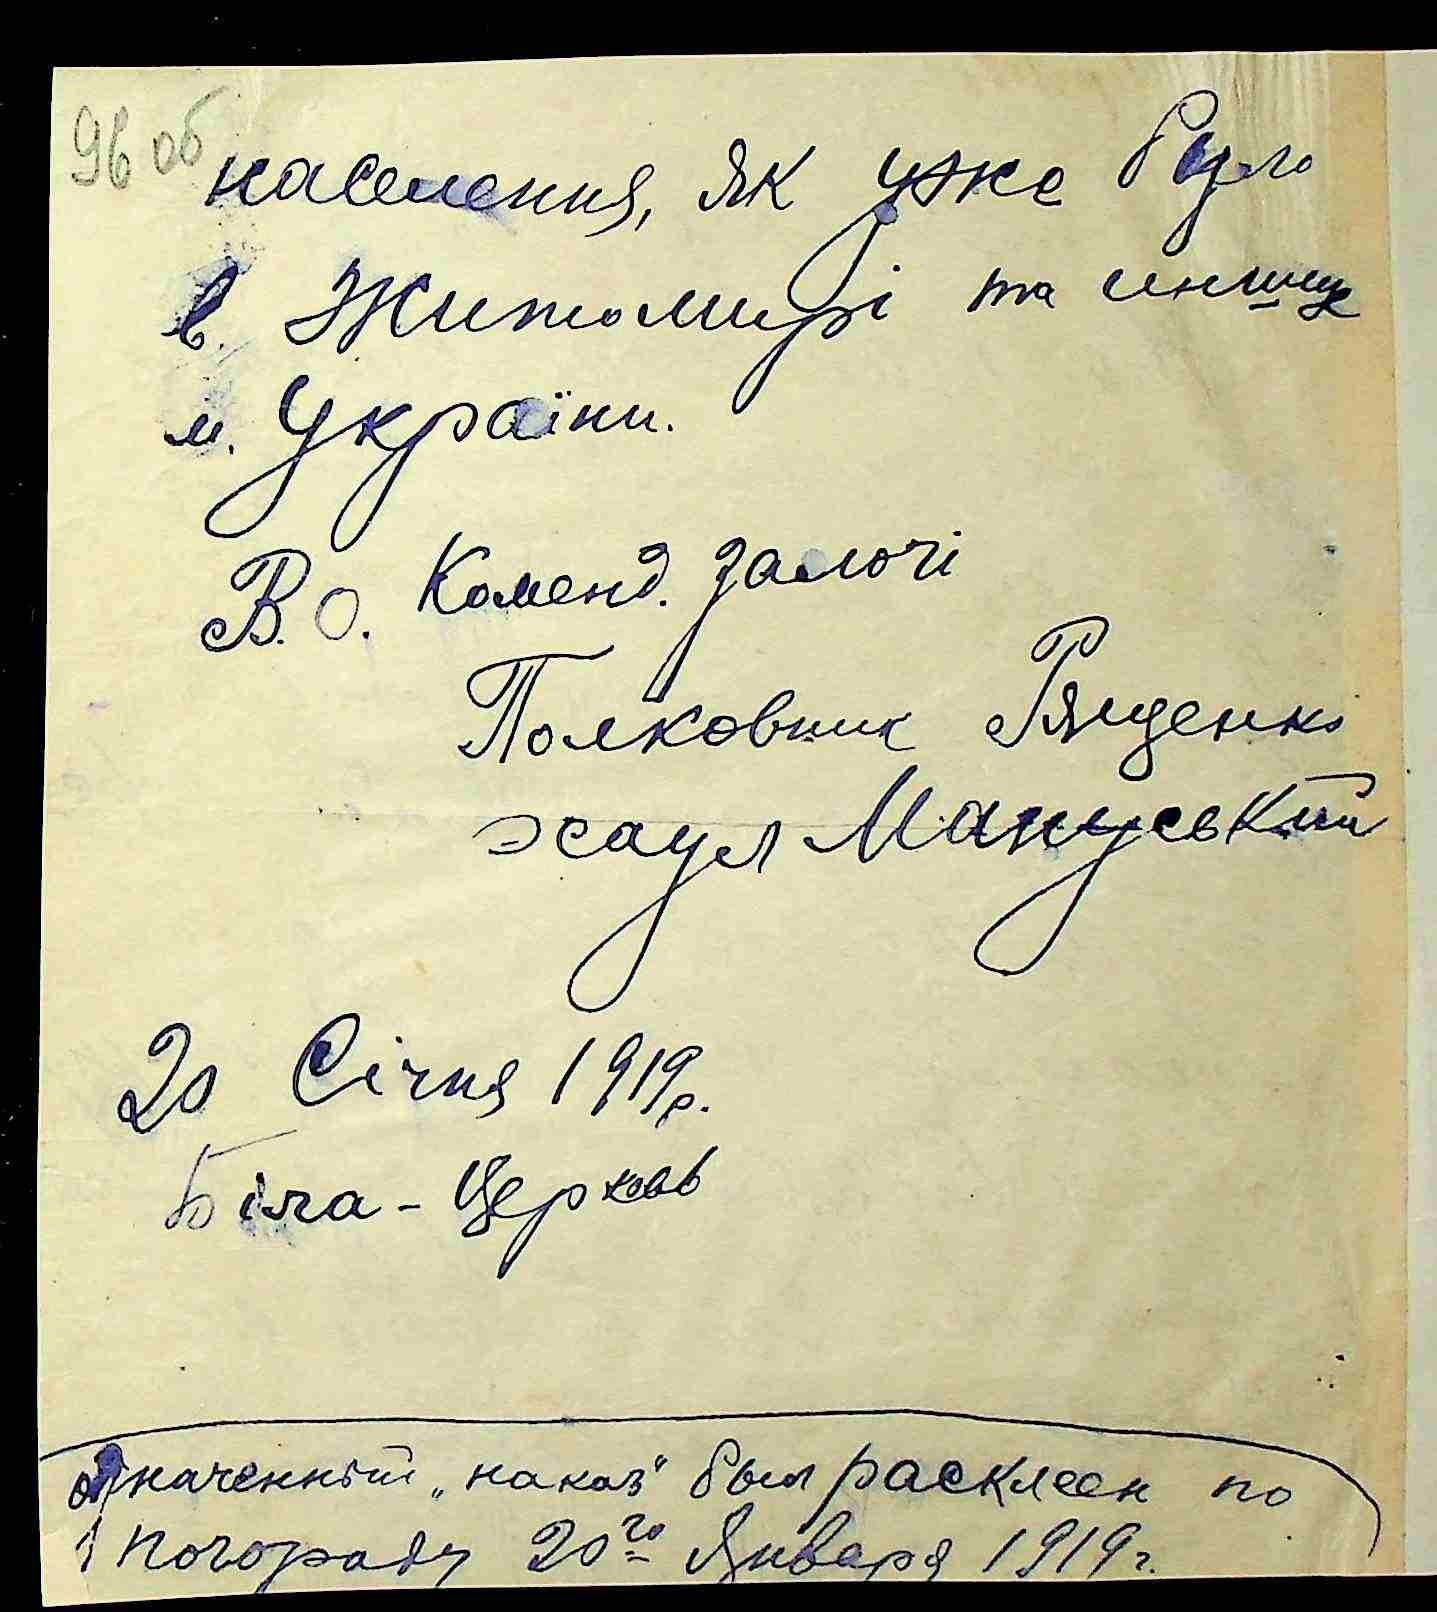 96 об
населення, як уже було
в. Житомирі та инших
м. України.
В.О. Коменд. залоги
Полковник Рященко
эсаул
20 Січня 1919р.
Біла-Церковь
означенный „наказ" был расклеен по
по городу 20го Января 1919г.